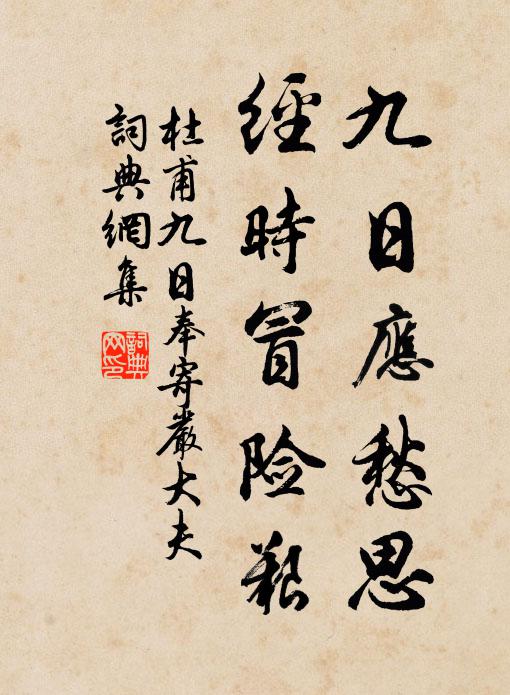 九日應愁思
經時冒险艱
杜甫九日奉寄嚴大夫
詞典網集
詞典网印